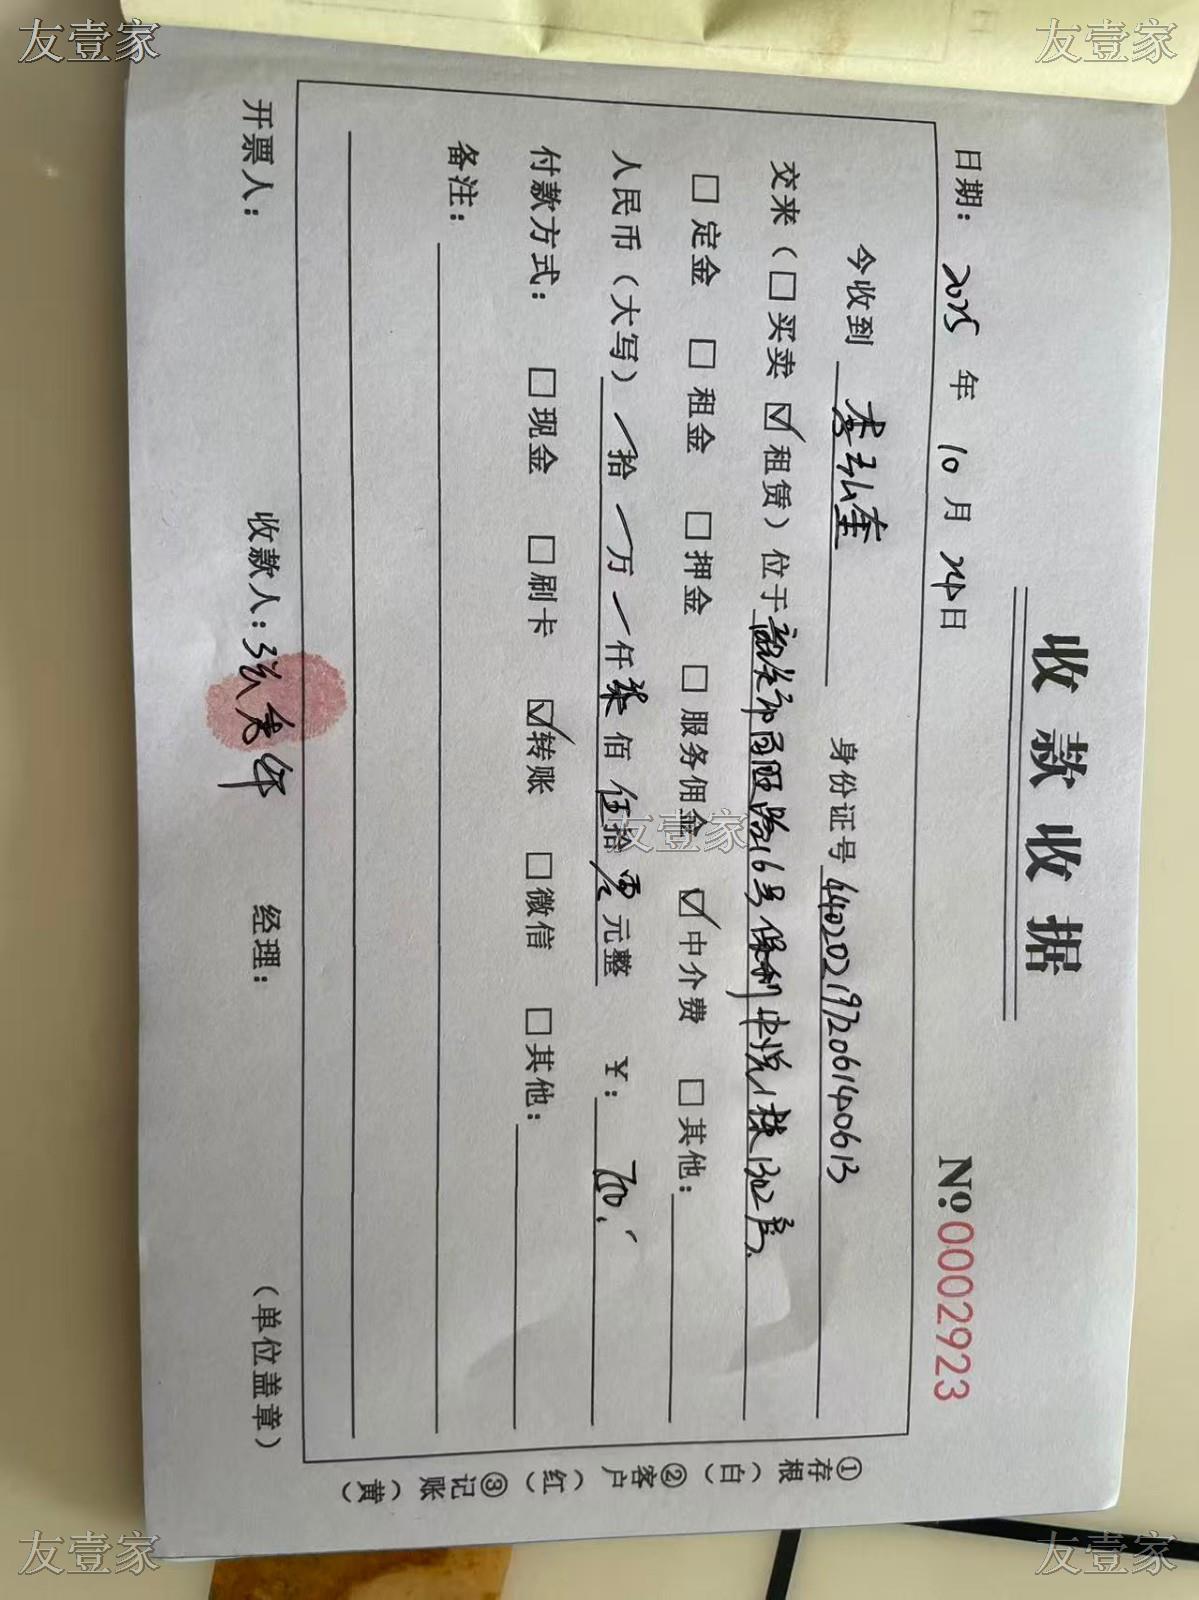 收款收据
No:0002923
日期：2025 年 10 月 24 日
今收到 李弘奎 身份证号 440202197206140613
交来（□买卖 ☑租赁）位于韶关市百旺路16号保利中悦1栋1302房
□定金 □租金 □押金 □服务佣金 ☑中介费 □其他：
人民币（大写） / 拾 / 万 / 仟 柒 佰 伍 拾 零 元整 ￥：750.-
付款方式： □现金 □刷卡 ☑转账 □微信 □其他：
备注：
开票人： 收款人：张 经理： （单位盖章）
①存根（白）②客户（红）③记账（黄）
友壹家
友壹家
友壹家
友壹家
友壹家